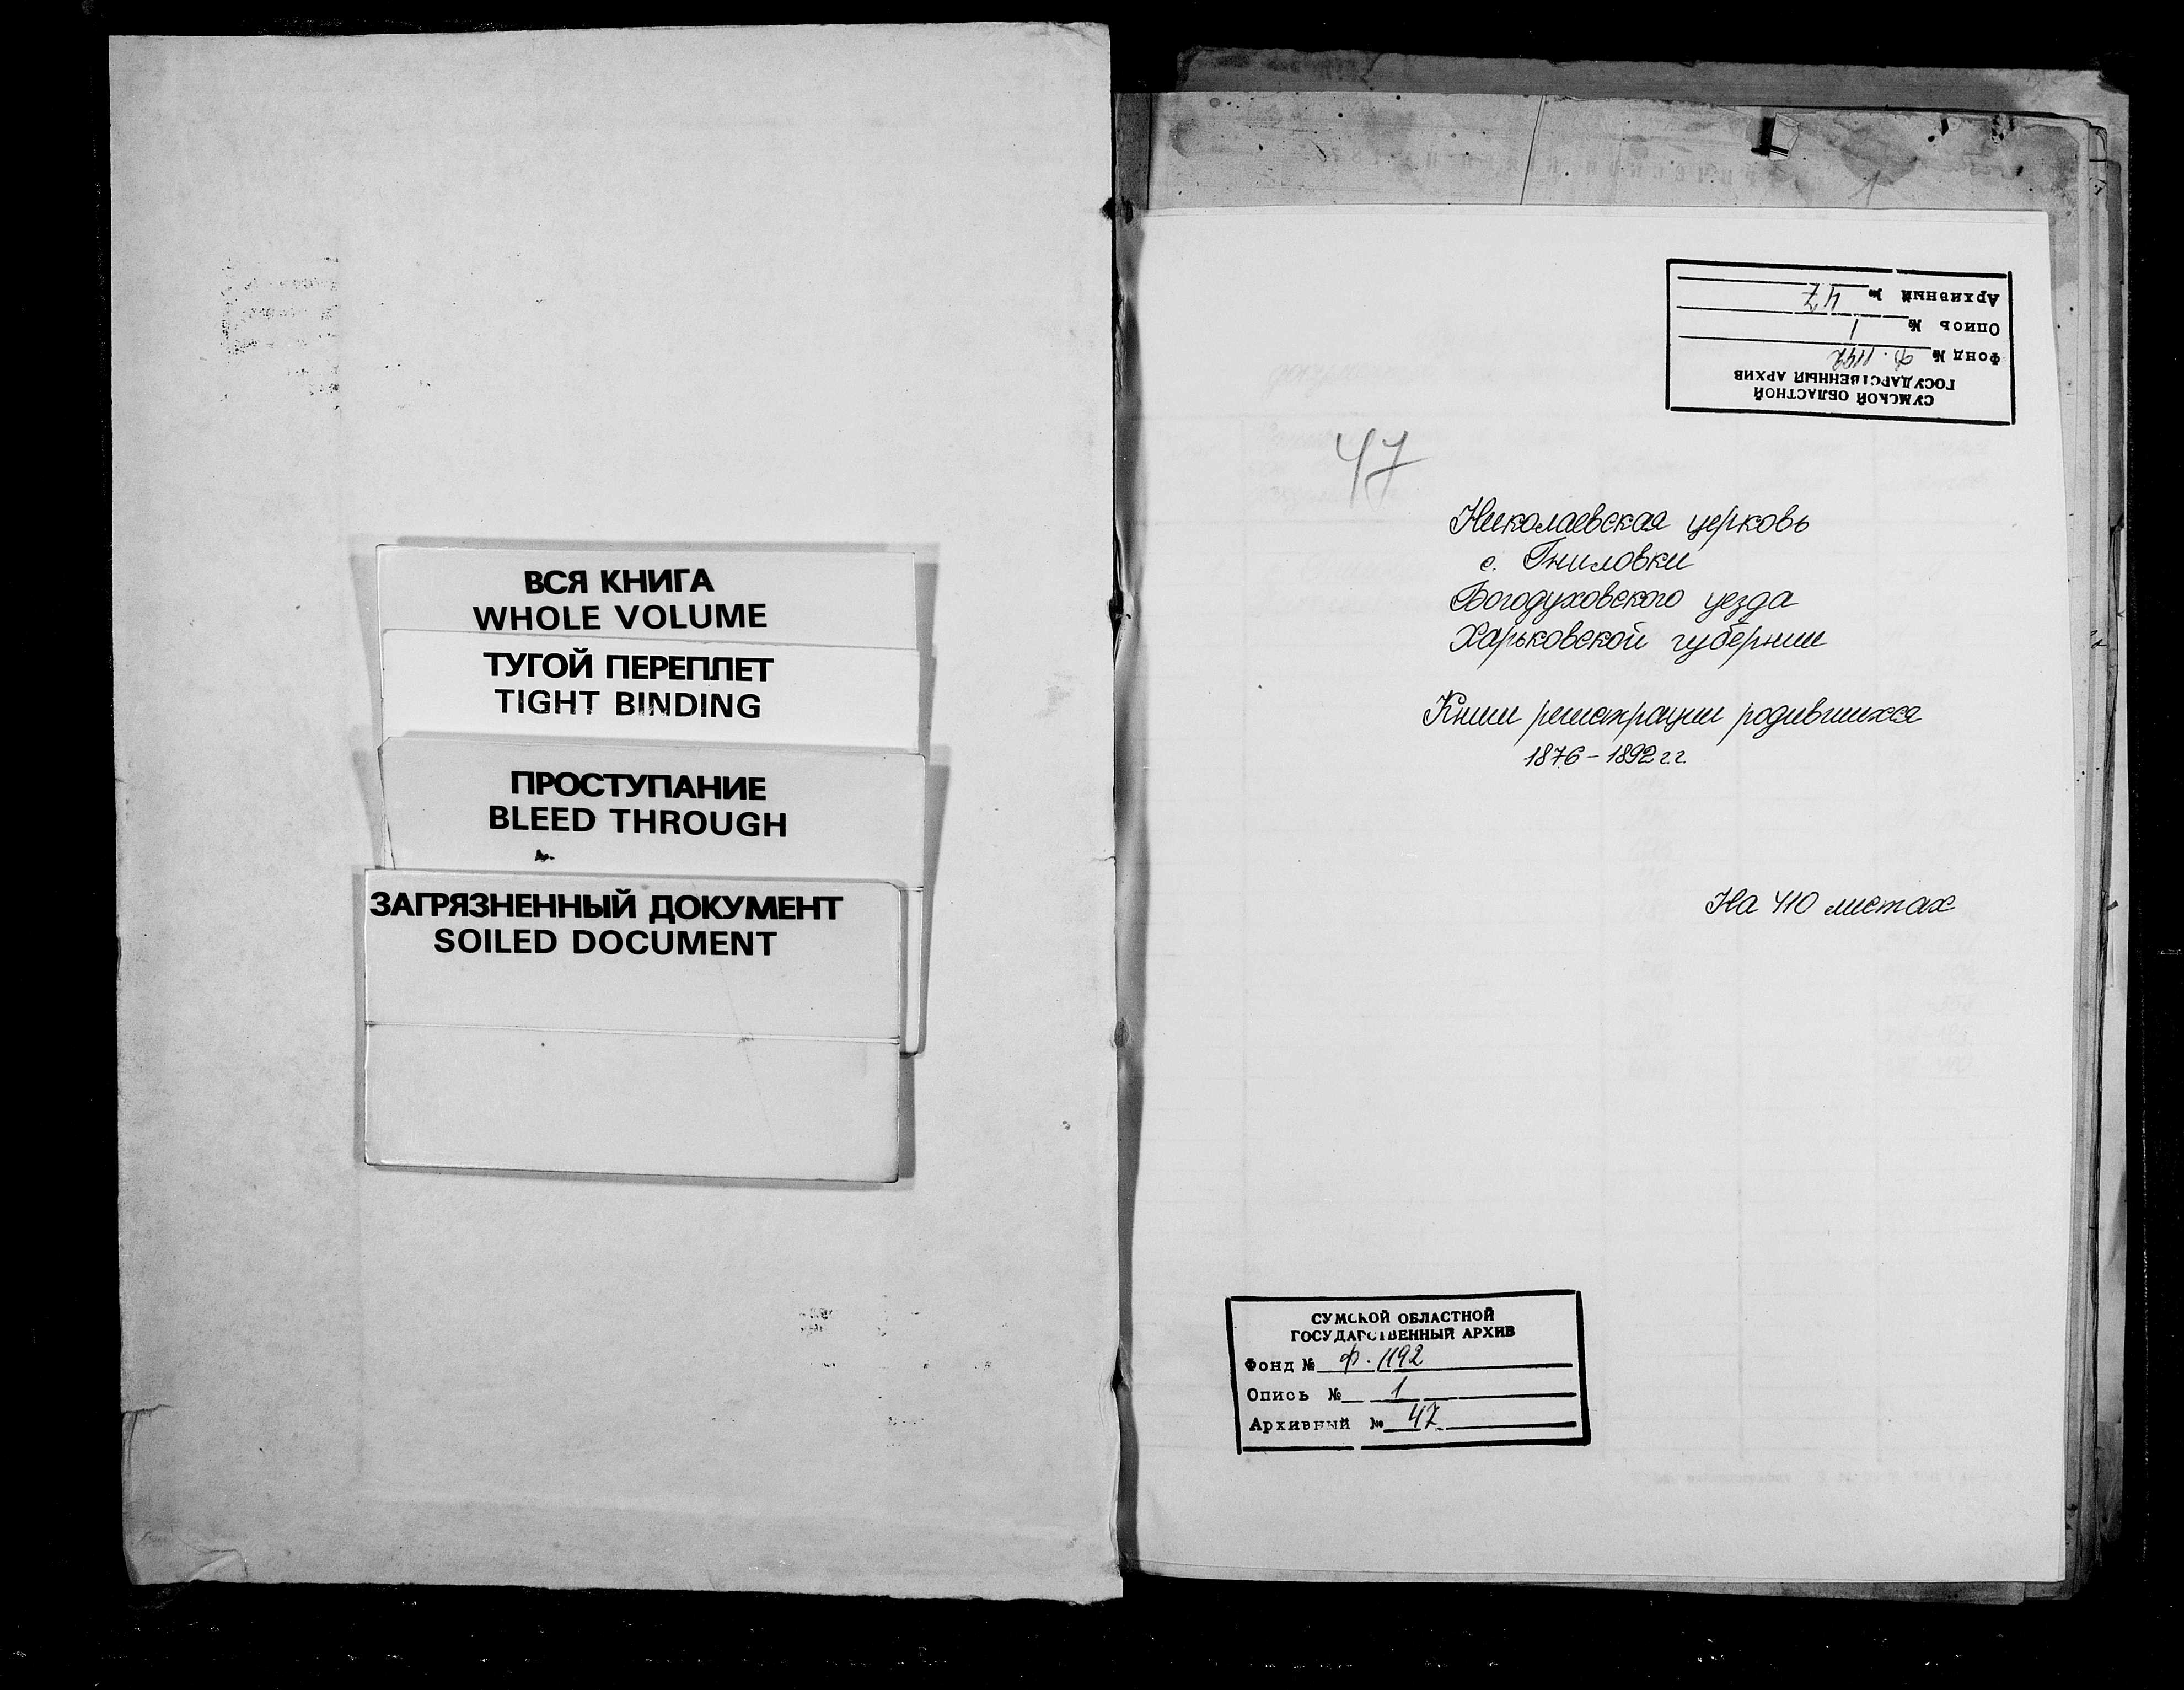 ВСЯ КНИГА
WHOLE VOLUME
ТУГОЙ ПЕРЕПЛЕТ
TIGHT BINDING
ПРОСТУПАНИЕ
BLEED THROUGH
ЗАГРЯЗНЕННЫЙ ДОКУМЕНТ
SOILED DOCUMENT
СУМСКОЙ ОБЛАСТНОЙ
ГОСУДАРСТВЕННЫЙ АРХИВ
Фонд № ф. 1192
Опись № 1
Архивный № 47
47
Николаевская церковь
с. Гниловки
Богодуховского уезда
Харьковской губернии
Книги регистрации родившихся
1876-1892 г.г.
На 410 листах
СУМСКОЙ ОБЛАСТНОЙ
ГОСУДАРСТВЕННЫЙ АРХИВ
Фонд № ф. 1192
Опись № 1
Архивный № 47